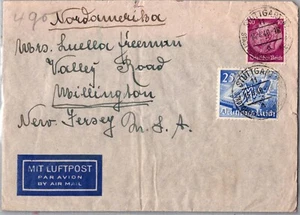 490
Nordamerika
Mrs. Luella Freeman
Valley Road
Millington
New Jersey U.S.A.
STUTTGART
25
Deutsches Reich
Deutsches Reich
MIT LUFTPOST
PAR AVION
BY AIR MAIL